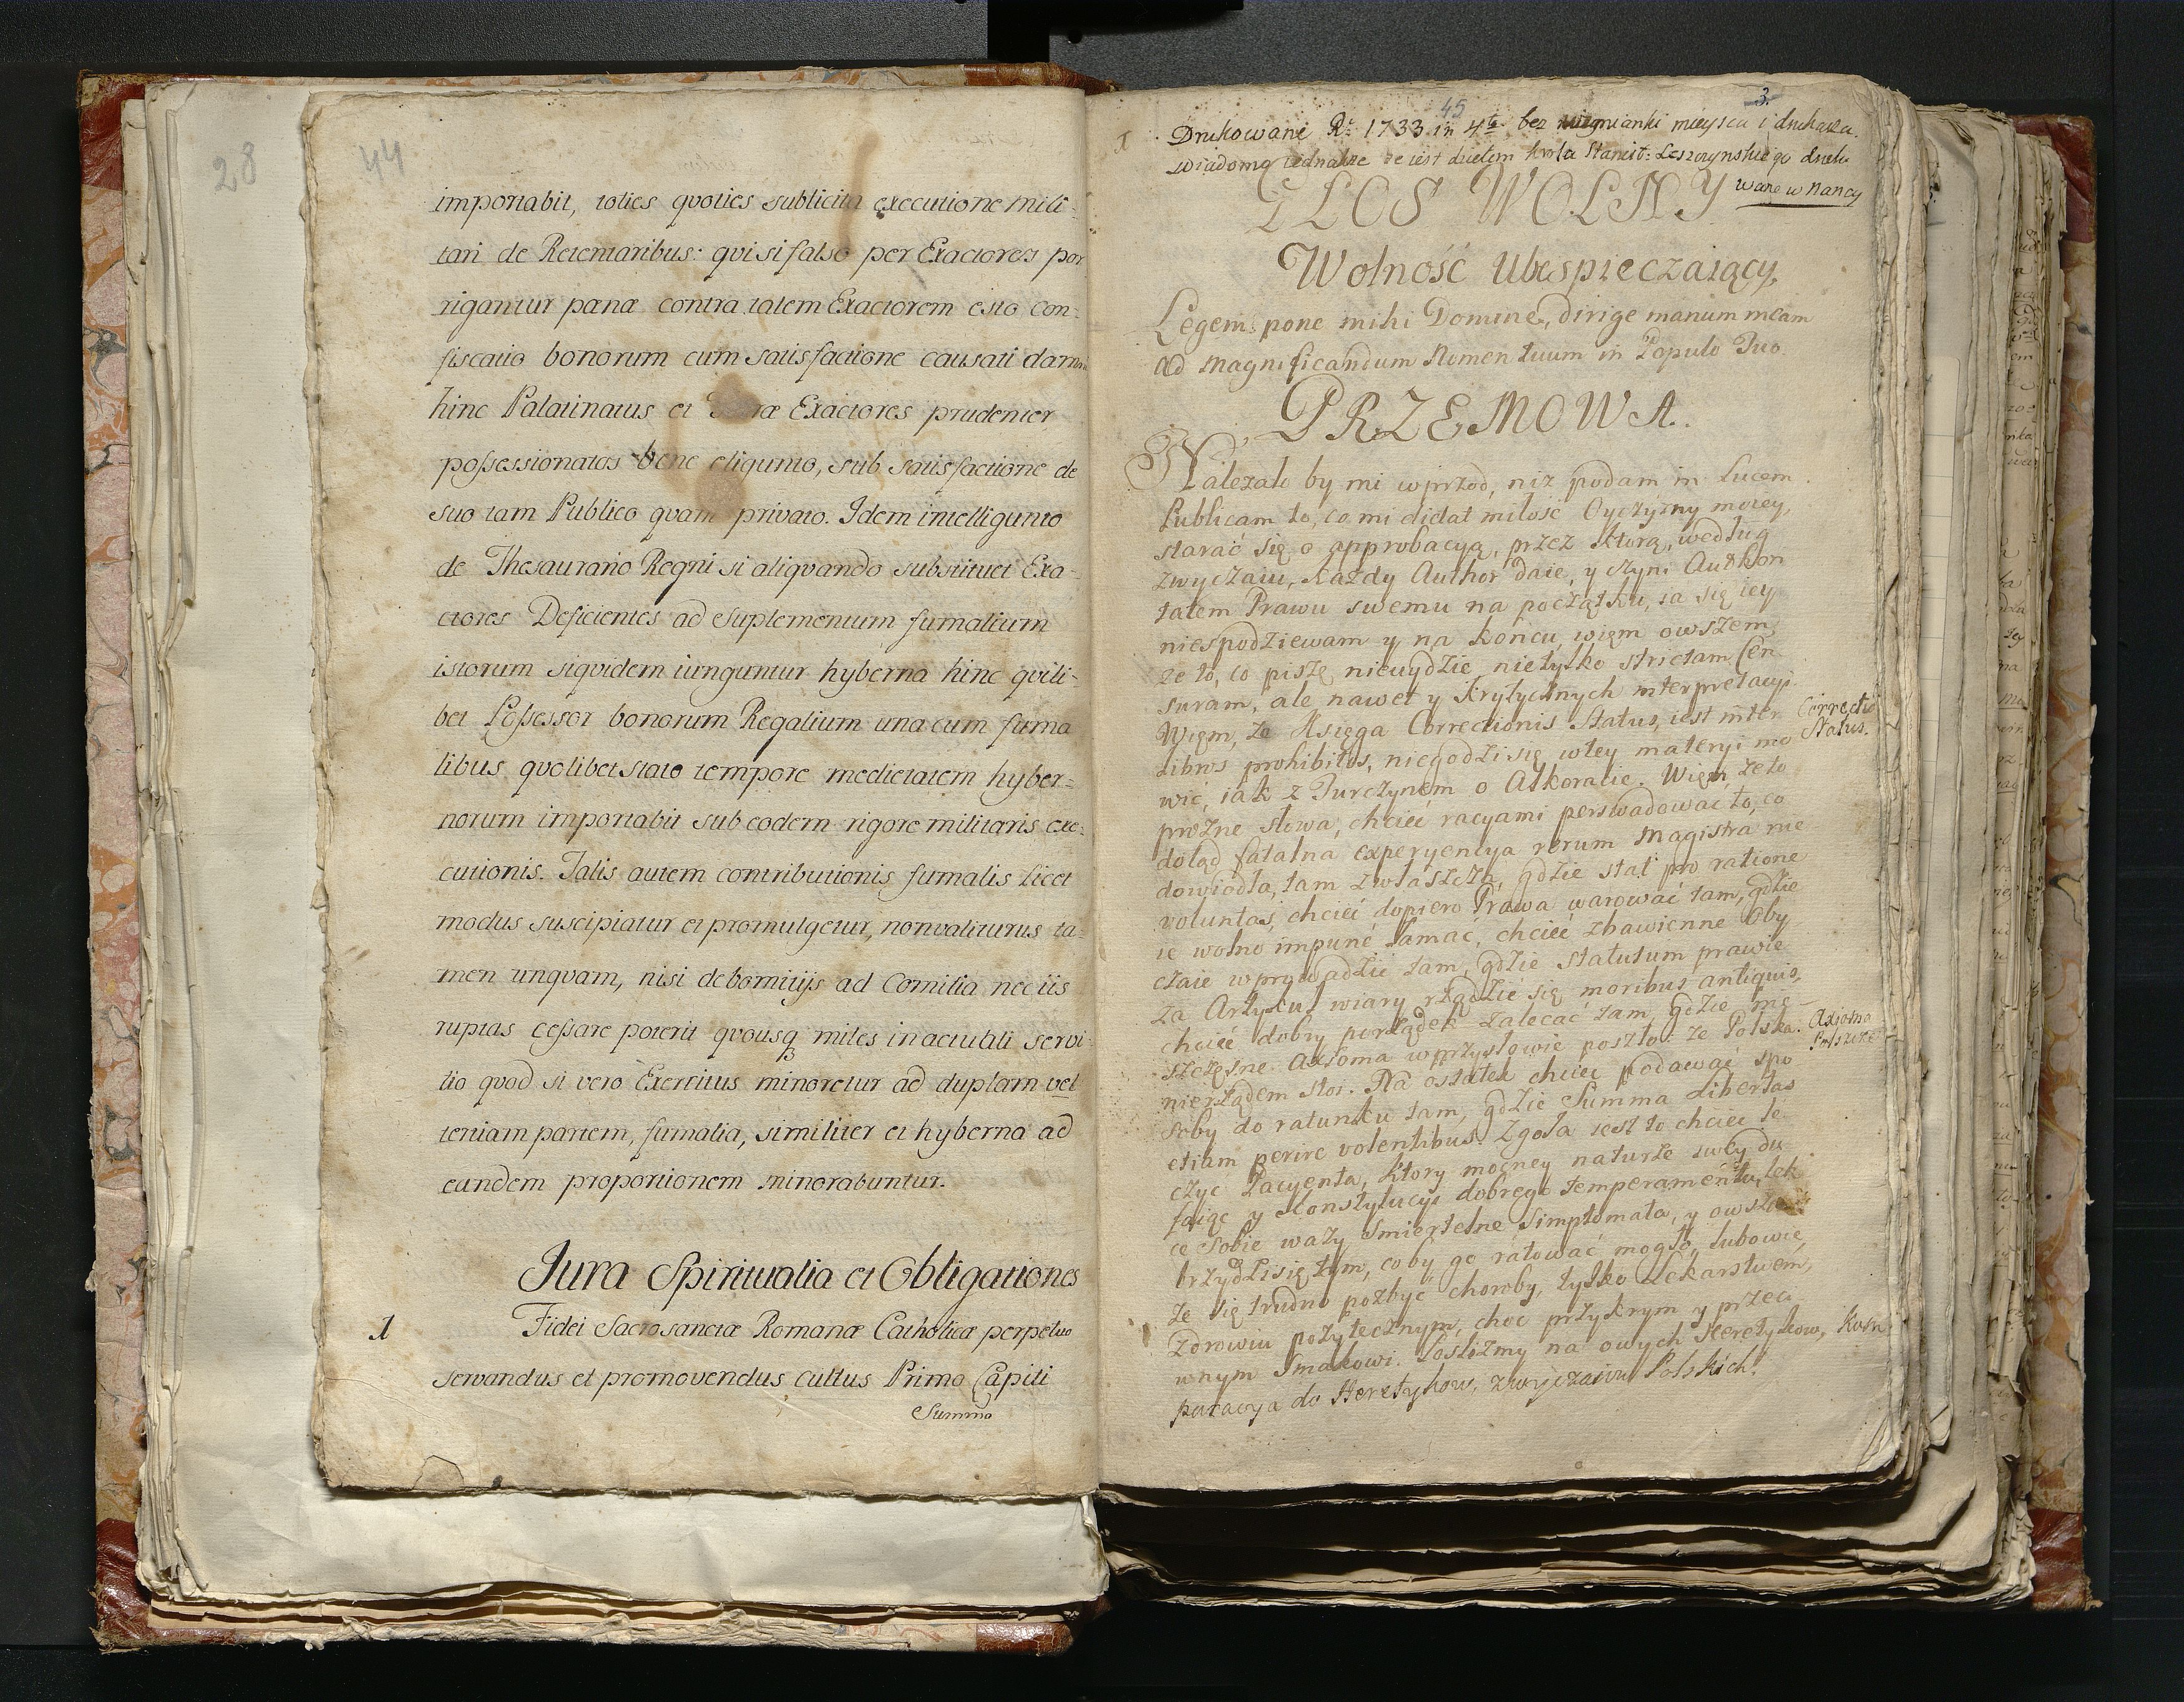 28
44
importabit, toties qvoties sublicita executione mili-
tari de Retentaribus: qvi si falso per Exactores por
rigantur pæna contra talem Exactorem esto con-
fiscatio bonorum cum satisfactione causati damni
hinc Palatinatus et Exactores prudenter
possessionatos bene eligunto, sub satisfactione de
suo tam Publico qvam privato. Idem intelligunto
de Thesaurario Regni si aliqvando substituet Exa-
ctores Deficientes ad Suplementum fumalium
istorum siqvidem iunguntur hyberna hinc qvili-
bet Possessor bonorum Regalium una cum fuma
libus qvolibet stato tempore medietatem hyber-
norum importabit sub eodem rigore militaris exe-
cutionis. Talis autem contributionis fumalis licet
modus suscipiatur et promulgetur, non valiturus ta-
men unqvam, nisi debornitijs ad Comitia nec iis
ruptas cessare poterit qvousq miles in actuali servi-
tio qvod si vero Exercitus minoretur ad duplam vel
tertiam partem, fumalia, similiter et hyberna ad
eandem proportionem minorabuntur.
Jura Spiritualia et Obligationes
1 Fidei Sacrosanctæ Romanæ Catholicæ perpetuo
servandus et promovendus cultus Primo Capiti
Summo
45
3.
Drukowane R. 1733 in 4to bez wzmianki mieysca i drukarza.
wiadomo iednakze ze iest dziełem krola Stanisł: Leszczynskiego druko
wane w Nancy
GŁOS WOLNY
Wolność Ubespieczaiący,
Legem pone mihi Domine, dirige manum meam
ad magnificandum Nomen tuum in Populo Tuo
PRZEMOWA.
Należało by mi wprzod, niz podam in Lucem
Publicam to, co mi dictat miłość Oyczyzny moiey,
starać się o approbacyą, przez ktorą, według
zwyczaiu, każdy Author daie, y czyni Authori
tatem Prawu swemu na początku, ia się iey
niespodziewam y na końcu, wiem owszem,
ze to, co piszę nieuydzie nietylko strictam Cen
suram, ale nawet y Krytycznych interpretacyi.
Wiem, ze Księga Correctionis Status, iest inter
Correctio
Status.
Libros prohibitos, niegodzi się wtey materyi mo
wić, iak z Turczynem o Alkoranie. Wiem, ze to
prozne słowa, chcieć racyami perswadować to, co
dotąd fatalna experyencya rerum magistra nie
dowiodła, tam zwłaszcza, gdzie stat pro ratione
voluntas, chcieć dopiero Prawa warować tam, gdzie
ie wolno impuné łamać, chcieć zbawienne oby
czaie wprowadzić tam, gdzie statutum prawie
za Artykuł wiary rządzić się moribus antiquis,
chcieć dobry porządek zalecać tam, gdzie nie-
szczęsne Axioma w przysłowie poszło: ze Polska
Axioma
Polskie
nierządem stoi. Na ostatek chcieć podawać spo
soby do ratunku tam, gdzie Summa Libertas
etiam perire volentibus. Zgoła iest to chcieć le
czyc Pacyenta, ktory mocney naturze swey du
faiąc y Konstytucyi dobrego temperamentu, lek
ce sobie waży śmiertelne simptomata, y owszem
brzydzi się tym, co by go ratować mogło, lubo wie,
ze się trudno pozbyć choroby, tylko Lekarstwem,
zdrowiu pożytecznym, choc przykrym y przeci
wnym smakowi. Poslizmy na owych Heretykow, Kom
paracya do Heretykow, zwyczaiow Polskich!